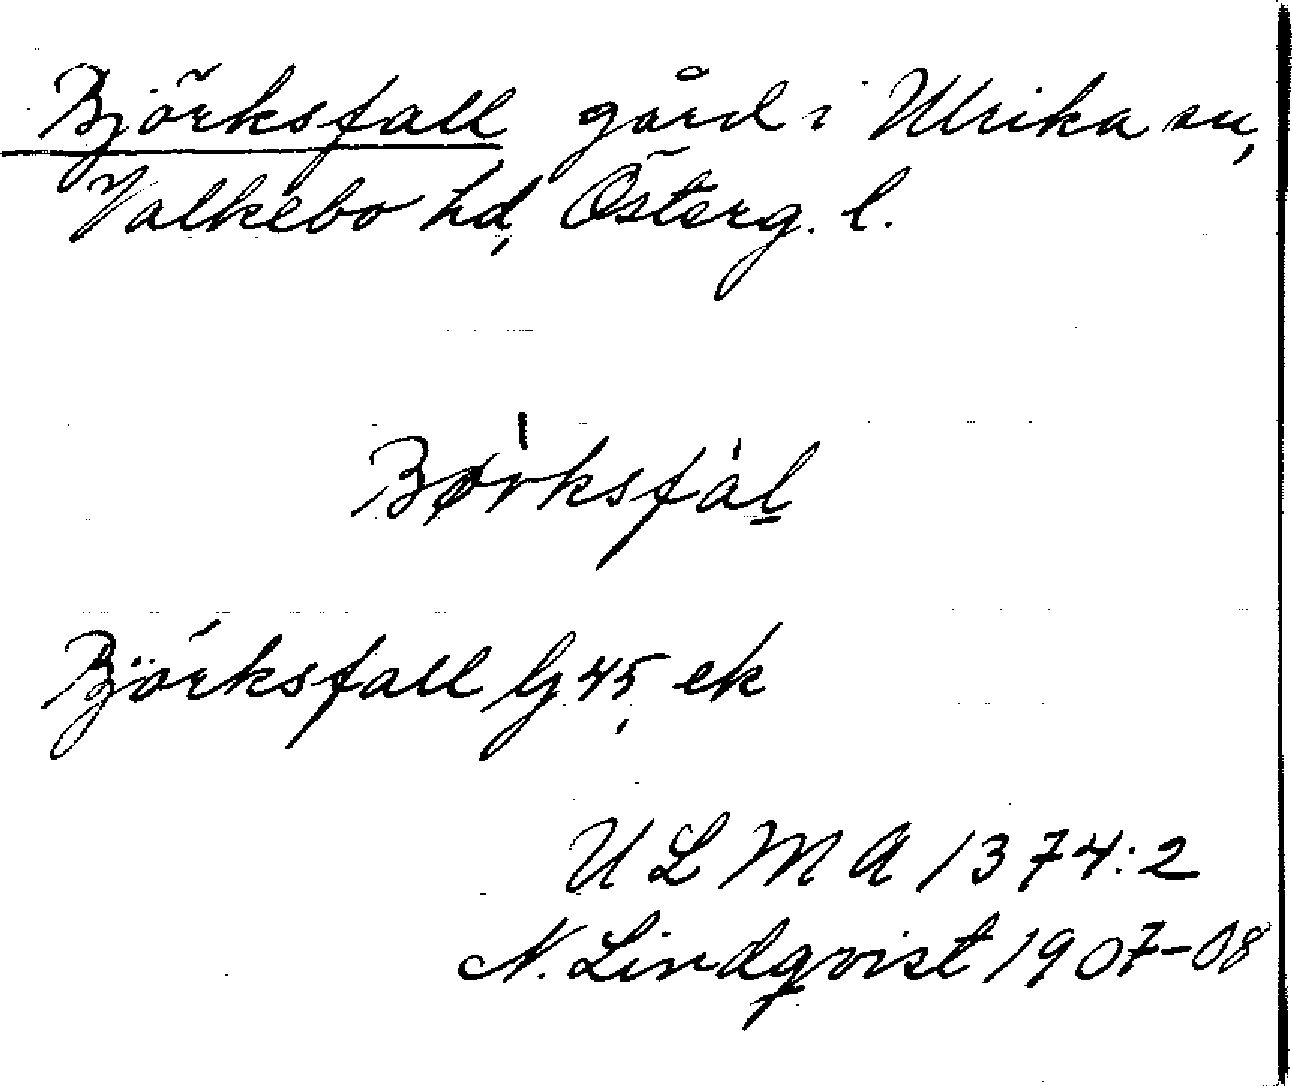 Björksfall gård i Ulrika sn,
Valkebo hd, Österg. l.
Børksfàl
Björksfall G 45, ek
ULMA 1374:2
N. Lindqvist 1907-08